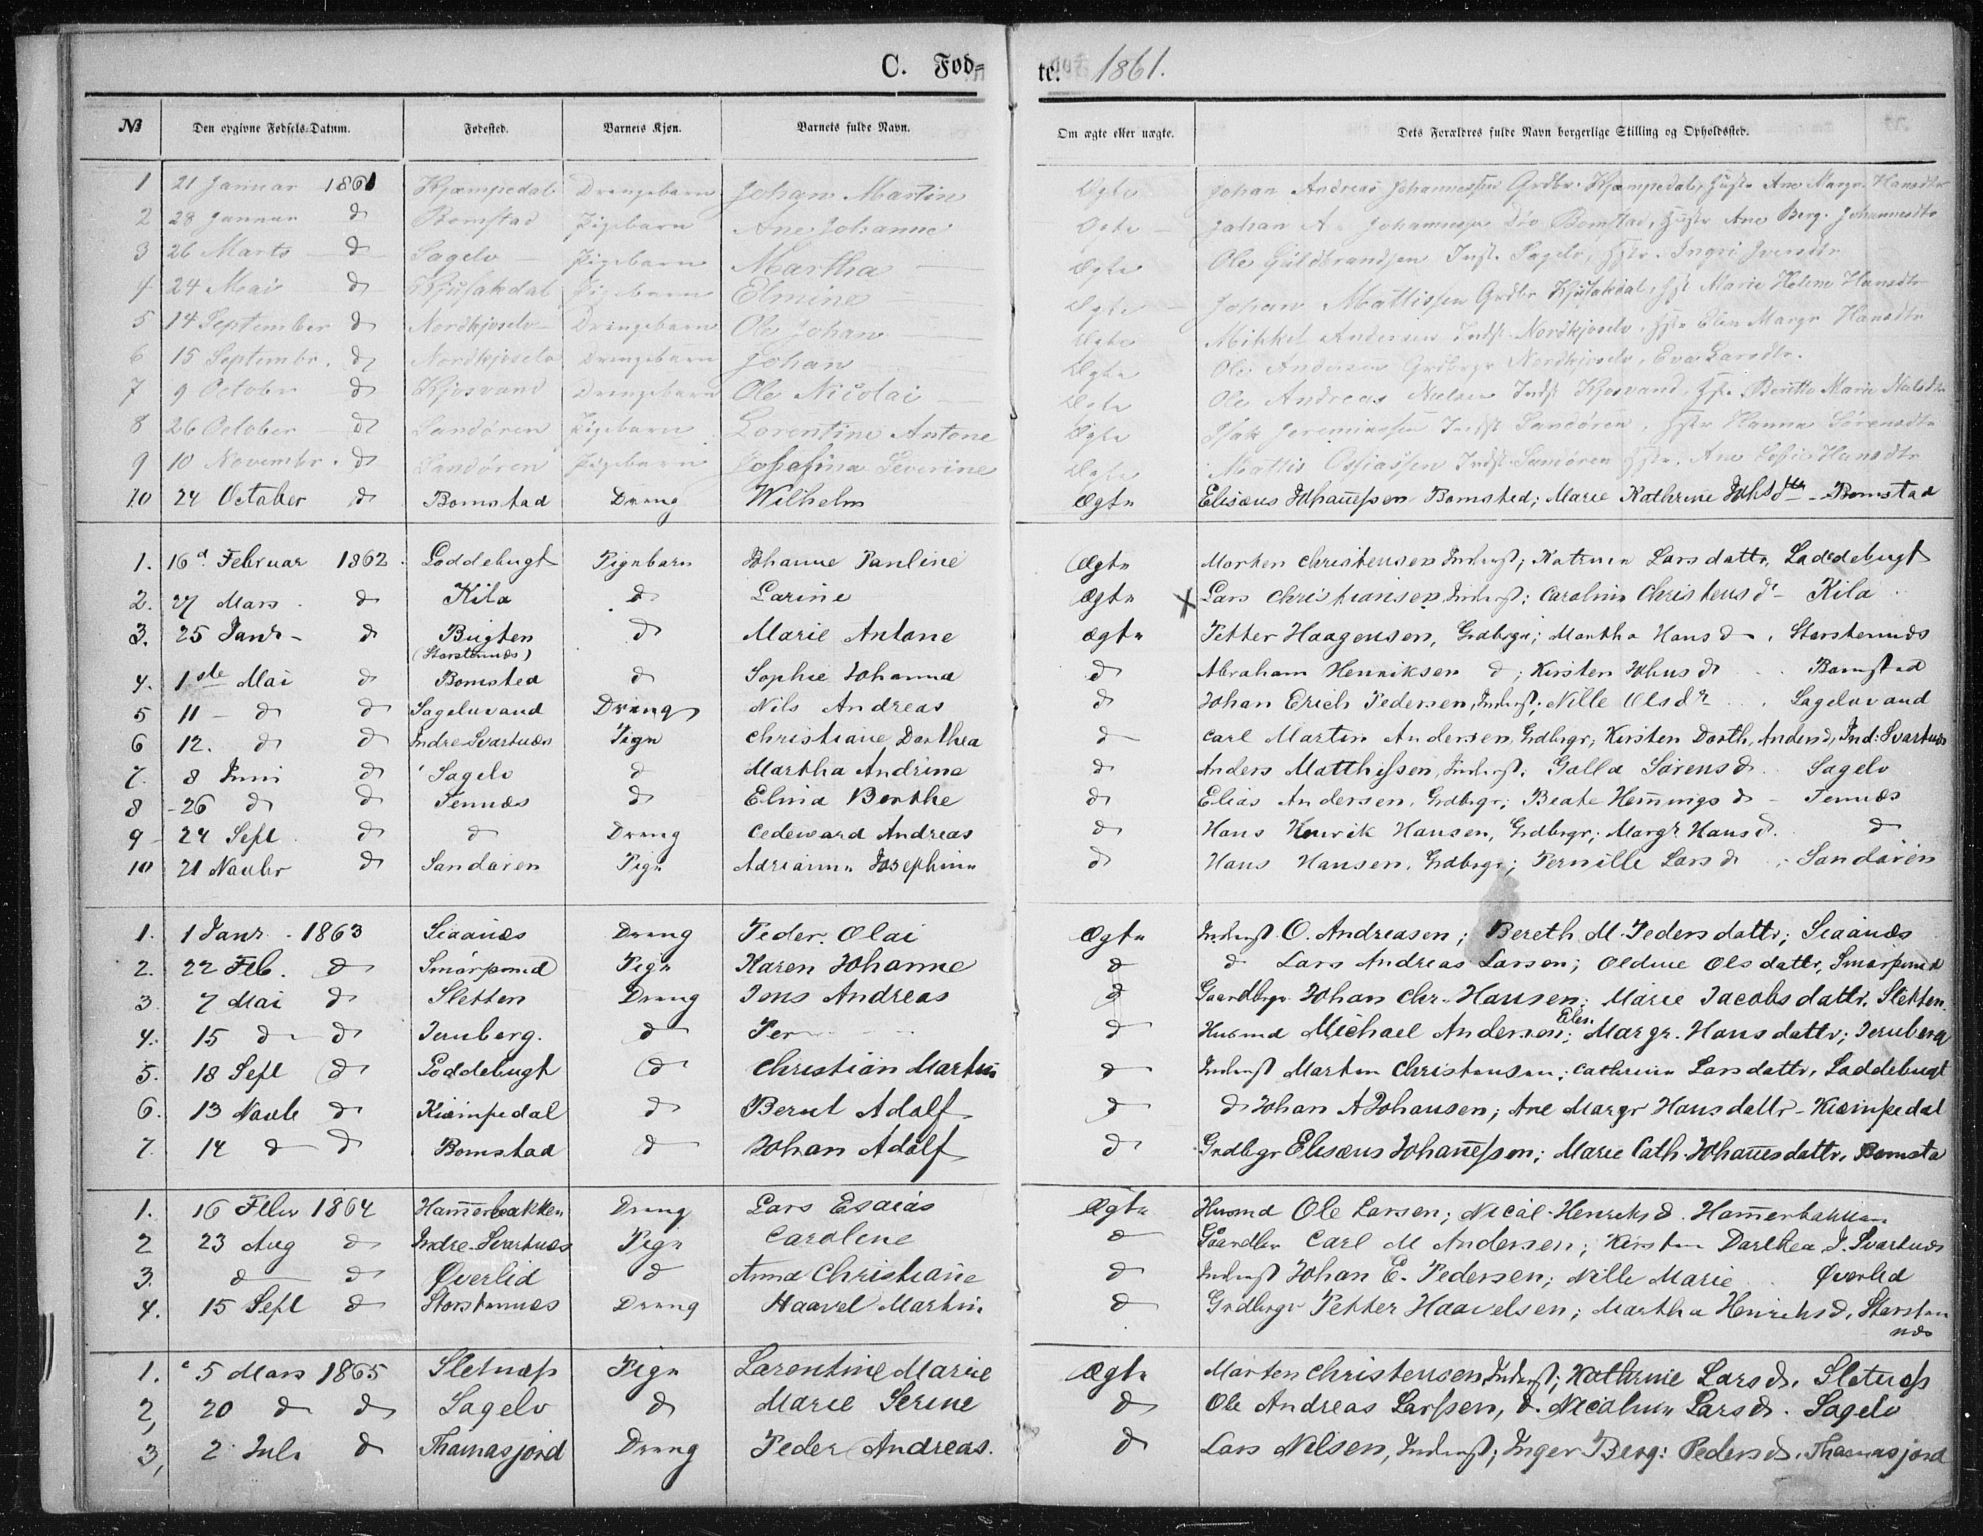 C. Fødte. 1861.
№ Den opgivne Fødsels-Datum. Fødested. Barnets Kjøn. Barnets fulde Navn. Om ægte eller uægte. Dets Forældres fulde Navn borgerlige Stilling og Opholdssted.
1 21 Januar 1861 Kjæmpedal Drengebarn Johan Martin Ægte Johan Andreas Johannessen Grdbr. Kjæmpedal, Hustr Ane Margr. Hansdtr
2 28 Januar d Bomstad Pigebarn Ane Johanne Ægte Johan A Johannessen Bomstad, Hustr Ane Berg. Johannesdtr
3 26 Marts d Sagelv Pigebarn Martha Ægte Ole Guldbrandsen Inst. Sagelv, Hstr. Ingri Iversdtr
4 24 Mai d Pigebarn Elmine Ægte Johan Mathissen Grdbr Marie Helene Hansdtr
5 14 September d Nordkjoselv Drengebarn Ole Johan Ægte Mikkel Andersen Indst. Nordkjoselv, Hstr Elen Margr Hansdtr
6 15 Septembr. d Nordkjoselv Drengebarn Johan Ægte Ole Andersen Grdbrgr Nordkjoselv, Eva Larsdtr.
7 9 Octobr d Kjosvand Drengebarn Ole Nicolai Ægte Ole Andreas Nielsen Indst Kjosvand, Hstr. Beritte Marie Nielsdtr
8 26 October d Sandøren Pigebarn Lorentine Antone Ægte Isak Jeremiassen Indst Sandøren, Hstr Hanna Sørensdtr
9 10 Novembr. d Sandøren Pigebarn Josefina Severine Ægte Mattis Osfiassen Indst. Sandøren Hstr. Ane Sofie Hansdtr
10 24 October d Bomstad Dreng Wilhelm Ægte Elisæus Johañessen Bomsted; Marie Kathrine Johsdtr - Bomstad
1. 16d Februar 1862. Loddebugt Pigebarn Johanne Pauline Ægte Morten Christensen Inderst; Katrine Larsdattr, Laddebugt
2. 27 Mars d Kila d Larine Ægte X Lars Christiansen Inderst; Caroline Christensd - Kila
3. 25 Janr - d Bugten (Storstennæs) d Marie Antone Ægte Petter Haagensen, Grdbrgr; Martha Hansd -, Storstennæs
4. 1ste Mai d Bomsted d Sophie Johanna d Abraham Henriksen d; Kirsten Johnsd Bomstad
5 11 - d d Sagelvvand Dreng Nils Andreas d Johan Erich Pedersen, Inderst; Nille Olsdr Sagelvvand
6 12. d d Indre Svartnæs Pige Christiane Dorthea d Carl Martin Andersen, Grdbrgr; Kirsten Dorth. Andersd, Ind: Svartnæs
7. 8 Juni d Sagelv d Martha Andrine d Anders Matthissen, Inderst; Galla Sørensd. Sagelv
8 26 d d Tennæs d Elina Berthe d Elias Andersen, Grdbrgr; Beate Hem̃ingsd - Tennæs
9 24 Sept. d d Dreng Cedeward Andreas d Hans Henrik Hansen, Grdbrgr; Margr. Hansd. d
10 21 Novbr d Sandøren Pige Adrianne Josephine d Hans Hansen, Grdbrgr; Pernille Larsd Sandøren
1. 1 Janr. 1863 Seaanæs Dreng Peder. Olai Ægte Inderst O. Andreasen; Bereth M. Pedersdattr; Seaanæs
2. 22 Feb. d Smørpund Pige Karen Johanne d d Lars Andreas Larsen; Oldine Olsdattr, Smørpund
3. 7 Mai d Sletten Dreng Jens Andreas d Gaardbrgr Johan Chr. Hansen; Marie Jacobsdattr. Sletten
4. 15 d d Jernberg. d Per d Husmd Michael Andersen; Elen Margr. Hansdattr; Jernberg
5. 18 Sept d Loddebugt d Christian Martin d Inderst Morten Christensen; Cathrine Larsdattr, Laddebugt
6. 13 Novb d Kiæmpedal d Bernt Adolf d d Johan A Johansen; Ane Margr Hansdattr - Kiæmpedal
7. 14 d d Bomstad d Johan Adolf d Grdbrgr Elisæus Johañessen; Marie Cath. Johañesdattr, Bomsta
1. 16 Febr 1864 Ham̃erbakken Dreng Lars Esaias Ægte Husmd Ole Larsen; Nicol. Henriksd. Ham̃erbakken
2 23 Aug d Indre-Svartnæs Pige Caroline d Gaardbr Carl M Andersen; Kirsten Dorthea, I. Svartnæs
3. d d Øverlid d Anna Christiañe d Inderst Johan E. Pedersen; Nille Marie Øverlid
4. 15 Sept d Storstennæs Dreng Haavel Martin d Grdbrgr Petter Haavelsen; Martha Henriksd, Storstennæs
1. 5 Mars 1865 Sletnæs Pige Larentine Marie Ægte Morten Christensen Inderst; Kathrine Larsd, Sletnæs
2, 20 d d Sagelv d Marie Serine d Ole Andreas Larssen, d. Nicoline Larsd. Sagelv
3, 2 Juli d Thomasjord Dreng Peder Andreas. d Lars Nilsen, Inderst; Inger Berg: Pedersd. Thomasjord